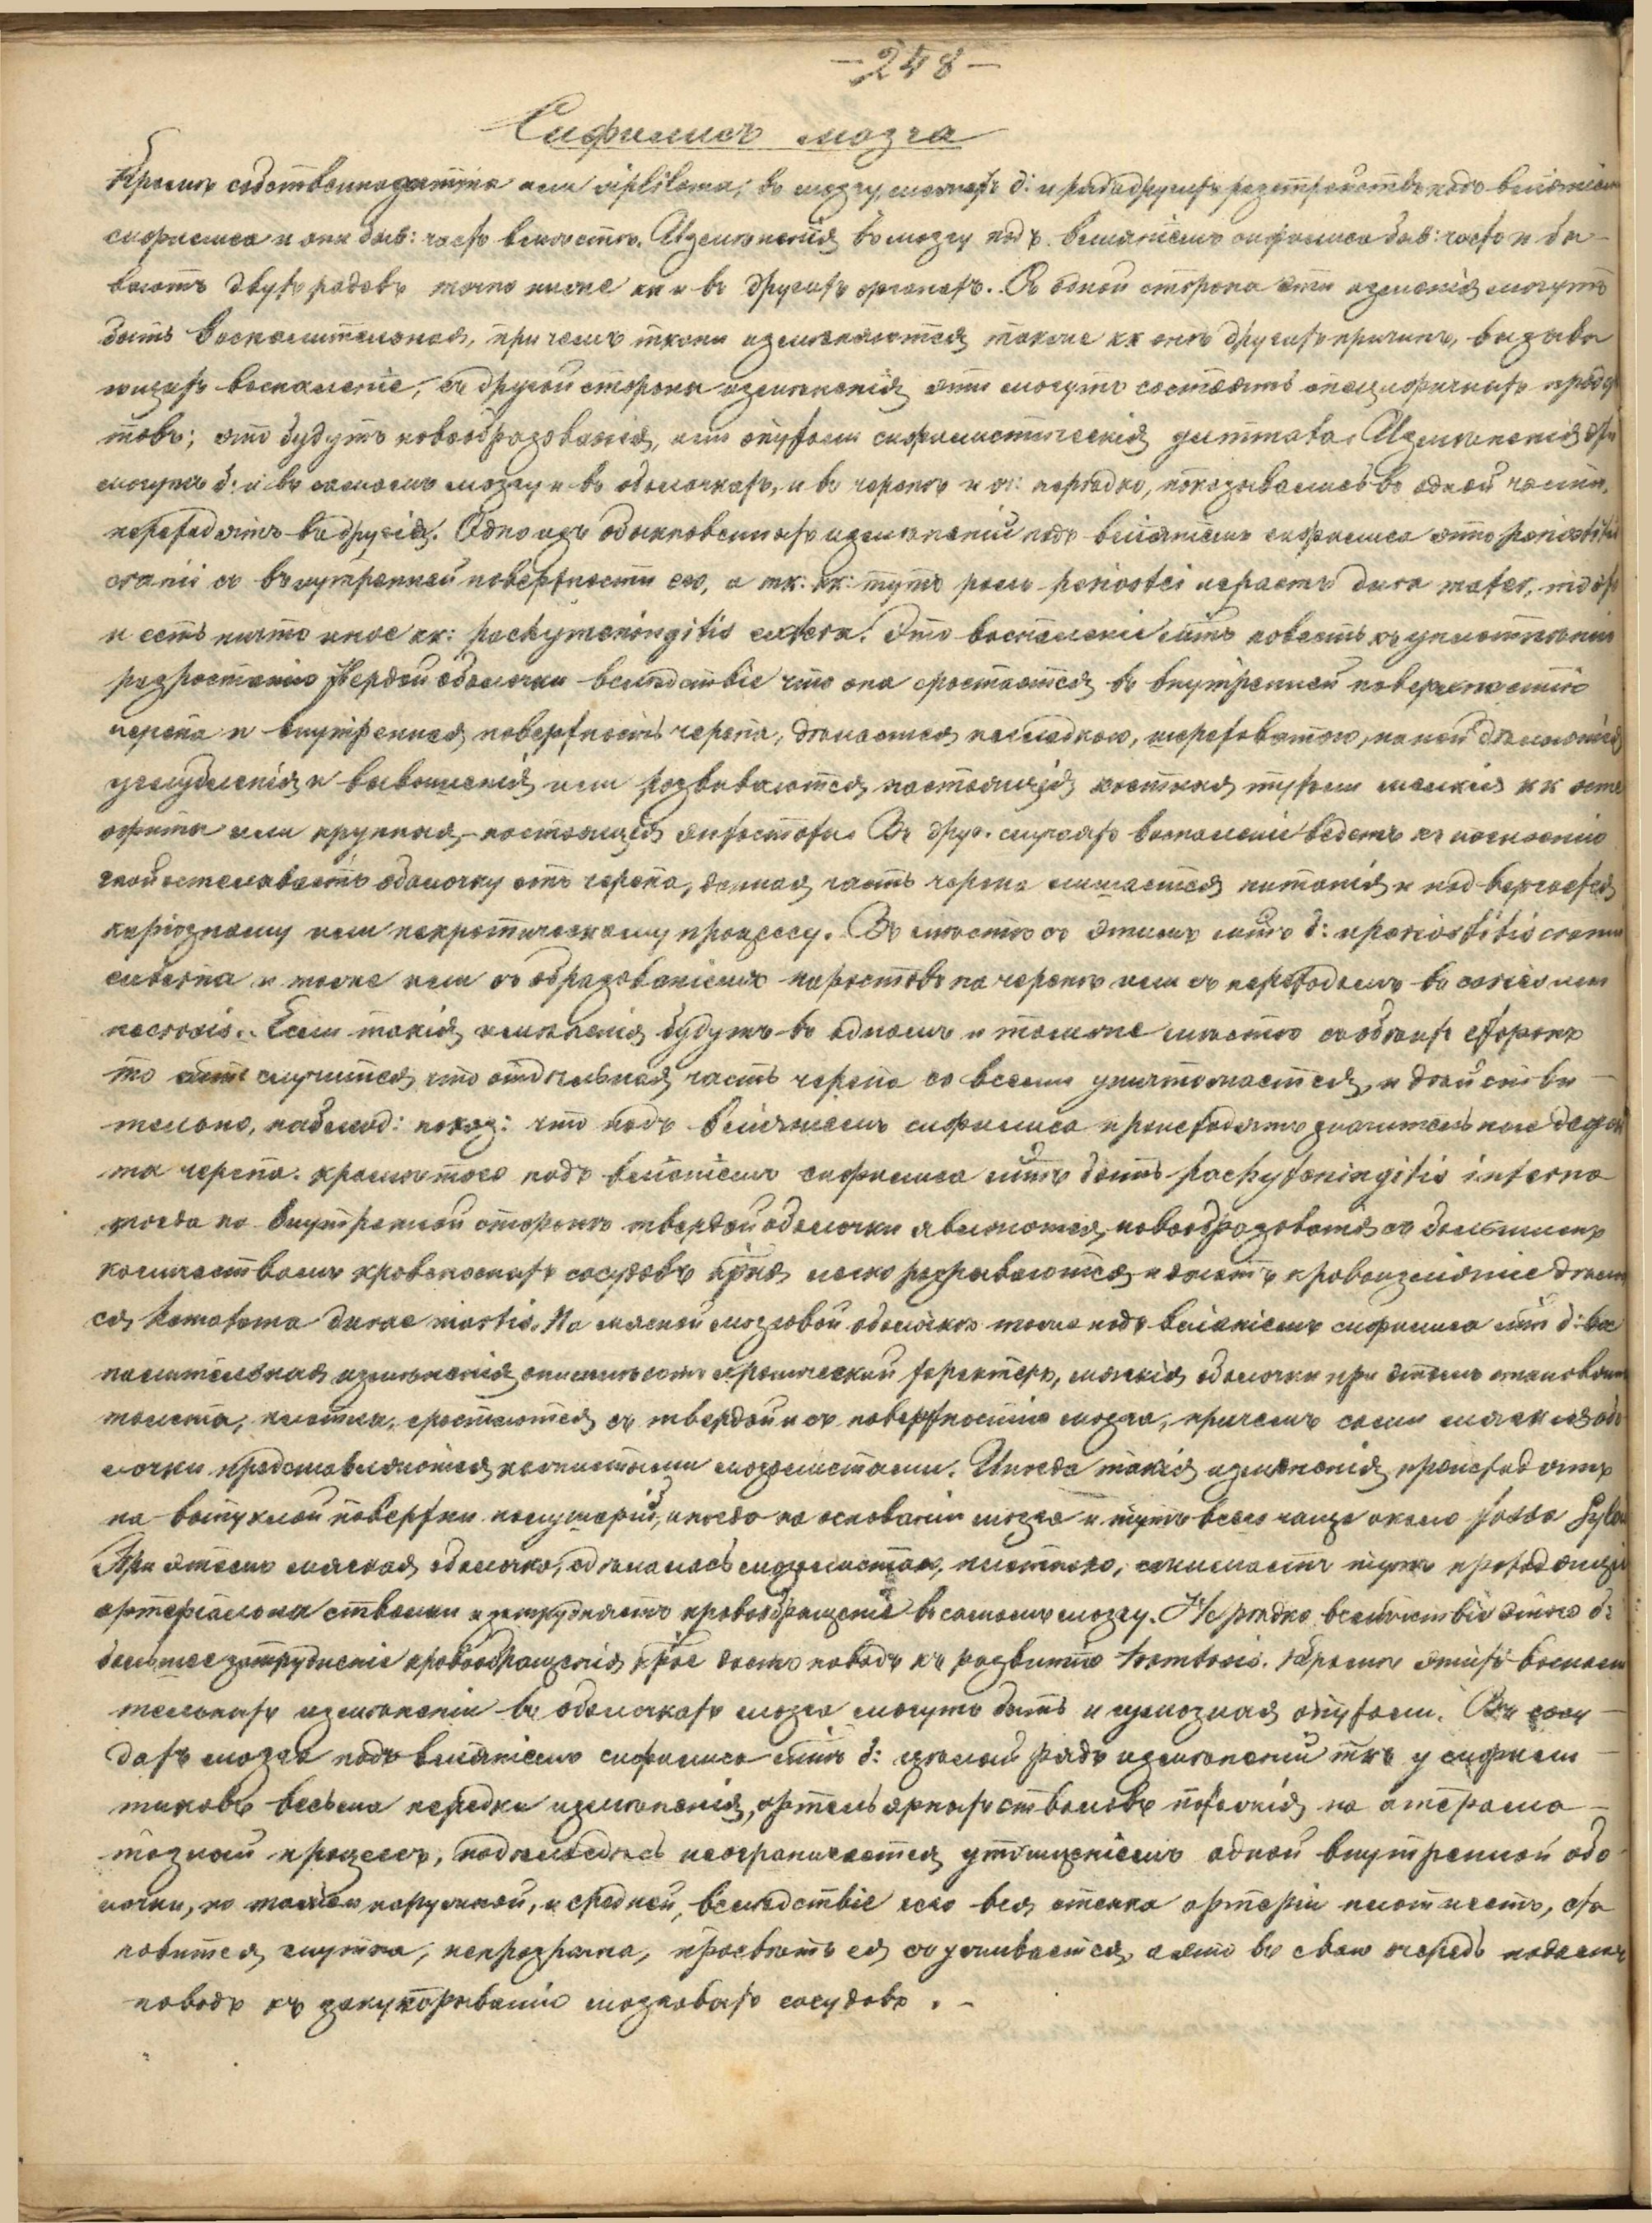 —248—
Сифилисъ мозга
Кромѣ собственно gumma или siphiloma, въ мозгу, можетъ б: и рядъ другихъ разстройствъ подъ вліяніемъ
сифилиса и они быв: часто вмѣстѣ. Измѣненія въ мозгу подъ вліяніемъ сифилиса быв: часто и бы-
ваютъ двухъ родовъ точно также кк и въ другихъ органахъ. Съ одной стороны эти измѣненія могутъ
быть воспалительныя, при чемъ ткани измѣняются также кк отъ другихъ причинъ, вызыва
ющихъ воспаленіе, съ другой стороны измѣненія эти могутъ состоять специфичныхъ продук
товъ; это будутъ новообразованія, или опухоли сифилистическія gummata. Измѣненія эти
могутъ б: и въ самомъ мозгу и въ оболочкахъ, и въ черепѣ и оч: нерѣдко, показываясь въ одной части,
переходятъ въ другія. Одно изъ обыкновенныхъ измѣненій подъ вліяніемъ сифилиса это periostitis
cranii съ внутренней поверхности его, а тк: кк: тутъ роль periostei играетъ dura mater, то это
и есть ничто иное кк: pachymeningitis externa. Это воспаленіе мжтъ повесть къ уплотненію
разростанію твердой оболочки вслѣдствіе чего она сростается съ внутренней поверхностію
черепа и внутренняя поверхность черепа, дѣлается негладкою, шероховатою, на ней дѣлаются
углубленія и возвышенія или развиваются настоящія костныя опухоли мелкія кк осте
офиты или крупныя, настоящія экзостозы. Въ друг. случаяхъ воспаленіе ведетъ къ нагноенію
гной отслаиваетъ оболочку отъ черепа, данная часть черепа лишается питанія и подвергается
каріозному или некротическому процессу. Въ мѣстѣ съ этимъ мжтъ б: и periostitis cranii
externa и тоже или съ образованіемъ наростовъ на черепѣ или съ переходомъ въ caries или
necrosis. Если такія измѣненія будутъ въ одномъ и томже мѣстѣ съ обѣихъ сторонъ
то случится, что отдѣльная часть черепа совсѣмъ уничтожается, и дѣйстви-
тельно, наблюд: показ: что подъ вліяніемъ сифилиса происходятъ значительные дефек
ты черепа. кромѣ того подъ вліяніемъ сифилиса мжтъ быть pachymeningitis interna
когда на внутренней сторонѣ твердой оболочки являются новообразованія съ большимъ
количествомъ кровеносныхъ сосудовъ кртыя легко разрываются и даютъ кровоизліяніе дѣлает
ся hematoma durae matris. На мягкой мозговой оболочкѣ тоже подъ вліяніемъ сифилиса мжтъ б: вос
палительныя измѣненія, они имѣютъ хроническій характеръ, мягкія оболочки при этомъ становятся
толсты, плотны, сростаются съ твердой и съ поверхностію мозга, причемъ сами мягкія обо
лочки представляются волокнистыми мозолистыми. Иногда такія измѣненія происходятъ
на выпуклой поверхни полушарій, иногда на основаніи мозга и тутъ всего чаще около fossa Sylvii
При этомъ мягкая оболочка, сдѣлалась мозолистою, плотною, сжимаетъ тутъ проходящіе
артеріальные стволы и затрудняетъ кровообращеніе въ самомъ мозгу. Не рѣдко вслѣдствіе этого б:
большее затрудненіе кровообращенія кртое даетъ поводъ къ развитію trombosis. Кромѣ этихъ воспали
тельныхъ измѣненій въ оболочкахъ мозга могутъ быть и гумозныя опухоли. Въ сосу-
дахъ мозга подъ вліяніемъ сифилиса мжтъ б: цѣлый рядъ измѣненій ткъ у сифили-
тиковъ весьма нерѣдки измѣненія, артеріальныхъ стволовъ похожія на атерома-
тозный процессъ, неограничается утолщеніемъ одной внутренней обо-
лочки, но также наружной, и средней, вслѣдствіе чего вся стенка артеріи плотнѣетъ, ста
новится мутна, непрозрачна, просвѣтъ ея съуживается, а это въ свою очередь подаетъ
поводъ къ закупориванію мозговыхъ сосудовъ. -